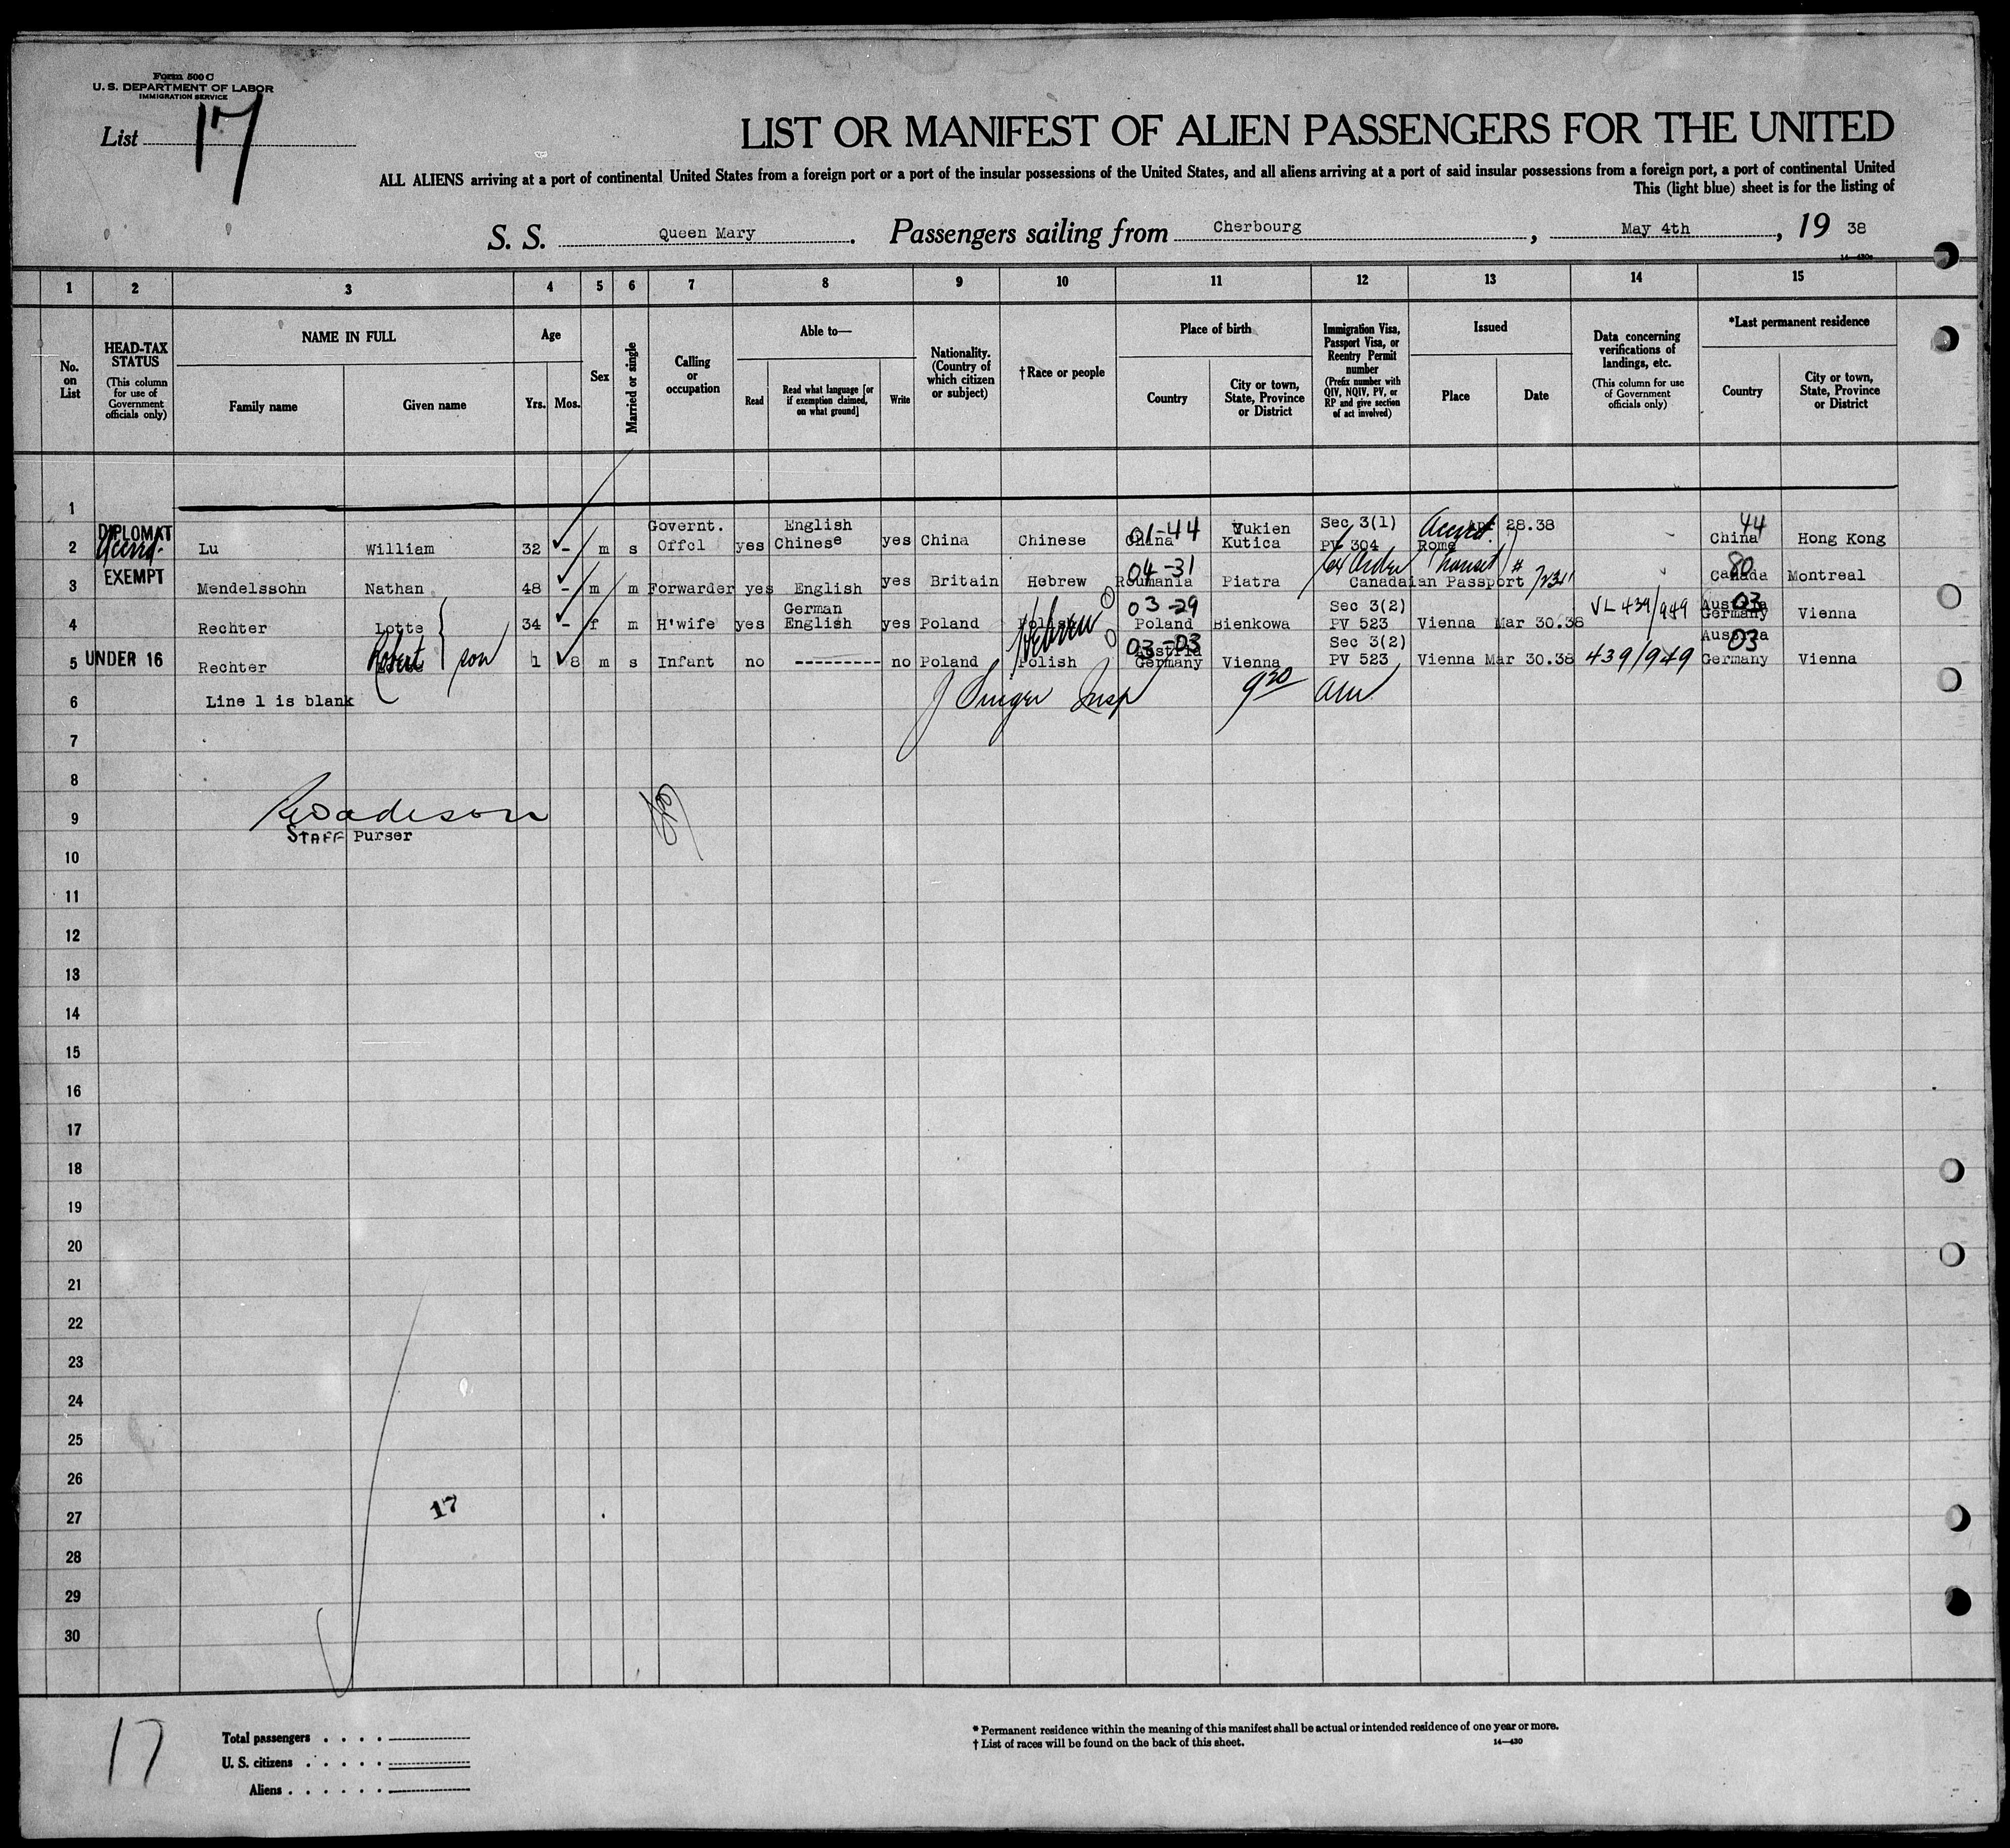 Form 500 C
U. S. DEPARTMENT OF LABOR
IMMIGRATION SERVICE
List 17
LIST OR MANIFEST OF ALIEN PASSENGERS FOR THE UNITED
ALL ALIENS arriving at a port of continental United States from a foreign port or a port of the insular possessions of the United States, and all aliens arriving at a port of said insular possessions from a foreign port, a port of continental United
This (light blue) sheet is for the listing of
S. S. Queen Mary. Passengers sailing from Cherbourg, May 4th, 19 38
14—430a
1 2 3 4 5 6 7 8 9 10 11 12 13 14 15
No. on List
HEAD-TAX STATUS (This column for use of Government officials only)
NAME IN FULL
Family name Given name
Age
Yrs. Mos.
Sex
Married or single
Calling or occupation
Able to—
Read
Read what language [or if exemption claimed, on what ground]
Write
Nationality. (Country of which citizen or subject)
†Race or people
Place of birth
Country
City or town, State, Province or District
Immigration Visa, Passport Visa, or Reentry Permit number (Prefix number with QIV, NQIV, PV, or RP and give section of act involved)
Issued
Place Date
Data concerning verifications of landings, etc. (This column for use of Government officials only)
*Last permanent residence
Country
City or town, State, Province or District
1
DIPLOMAT Governt. English 01-44 Yukien Sec 3(1) Accrd. Apr 28.38 44
2 Accrd. Lu William 32 - m s Offcl yes Chinese yes China Chinese China Kutica PV 304 Rome China Hong Kong
EXEMPT 04-31 Transit # 80
3 Mendelssohn Nathan 48 - m m Forwarder yes English yes Britain Hebrew Roumania Piatra Canadaian Passport Canada Montreal
German 03-29 Sec 3(2) VL 439/949 Austria 03
4 Rechter Lotte 34 - f m H'wife yes English yes Poland Polish Hebrew Poland Bienkowa PV 523 Vienna Mar 30.38 Germany Vienna
Robert son 03-03 Austria Sec 3(2) Austria 03
5 UNDER 16 Rechter 1 8 m s Infant no ---------- no Poland Polish Germany Vienna PV 523 Vienna Mar 30.38 439/949 Germany Vienna
6 Line 1 is blank J Singer Insp 9 20 am
7
8
9
STAFF Purser
10
11
12
13
14
15
16
17
18
19
20
21
22
23
24
25
26
27 17
28
29
30
17
Total passengers . . . .
U. S. citizens . . . . .
Aliens . . . . . .
* Permanent residence within the meaning of this manifest shall be actual or intended residence of one year or more.
† List of races will be found on the back of this sheet. 14—430